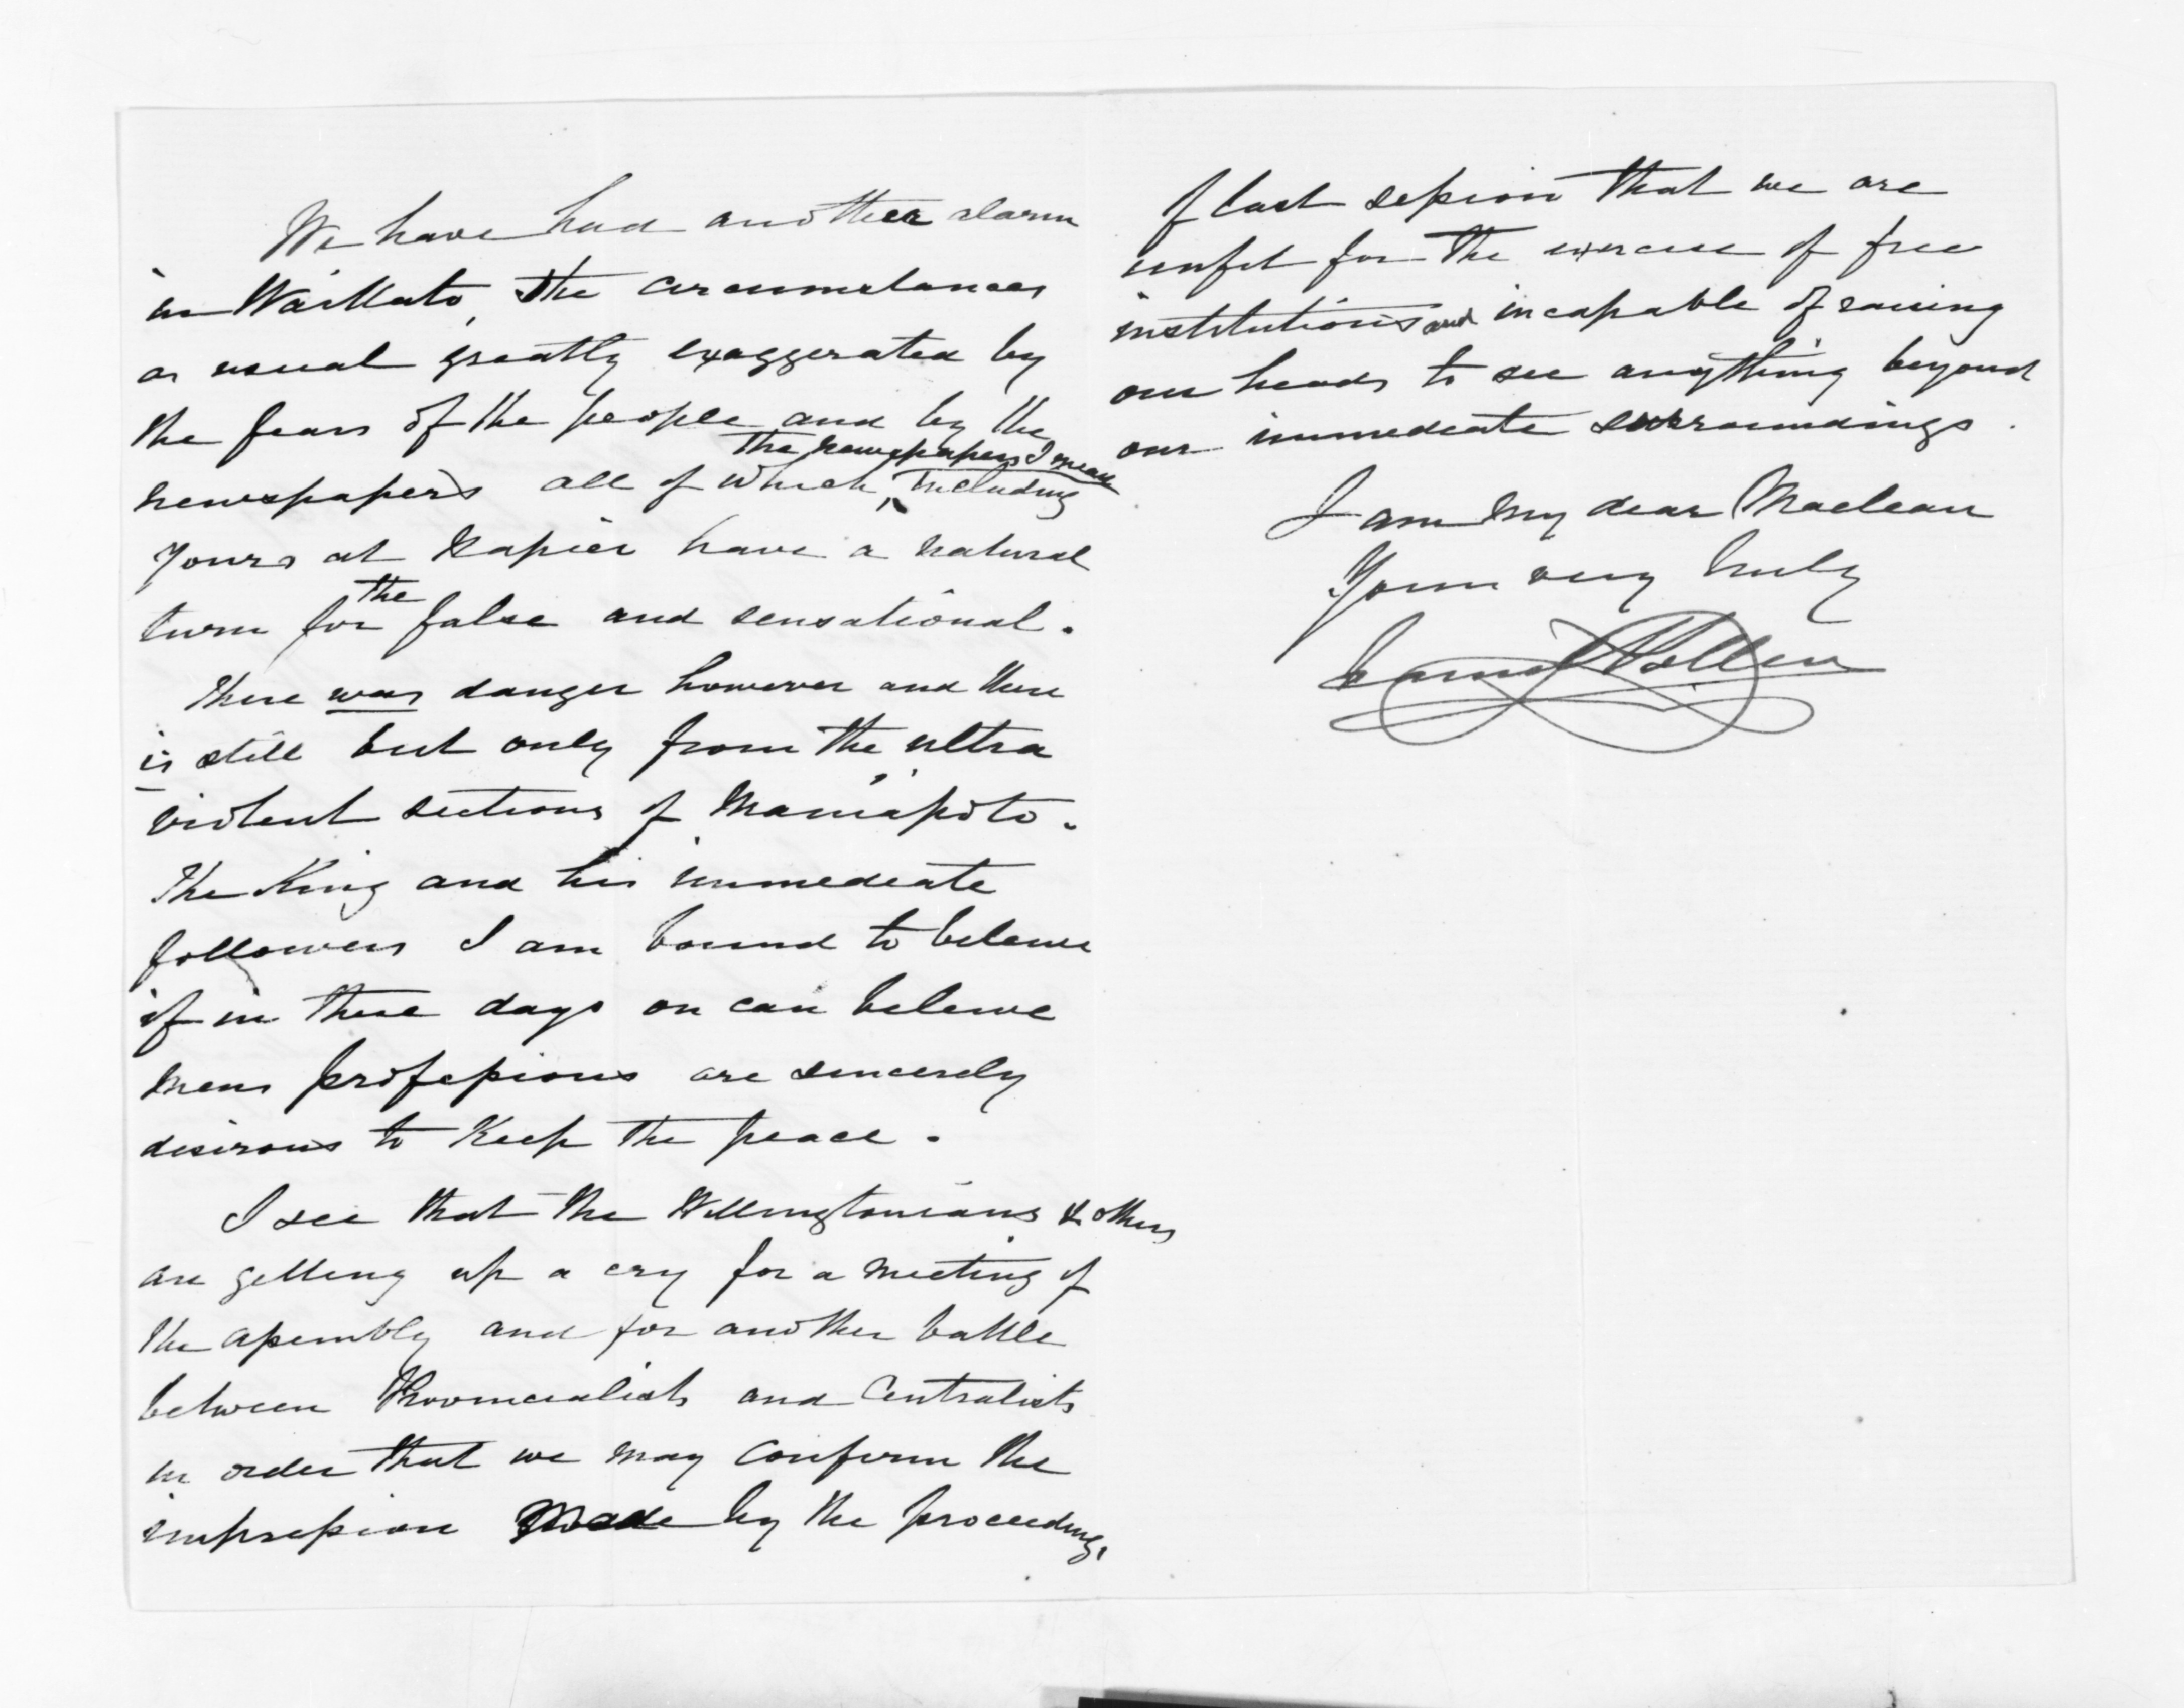 We have had another alarm
in Waikato, the circumstances
as usual greatly exaggerated by
the fears of the people and by the
newspapers all of which, the newspapers I mean including
yours at Napier have a natural
turn for the false and sensational.
There was danger however and there
is still but only from the ultra
violent sections of Maniapoto.
The King and his immediate
followers I am bound to believe
if in these days on can believe
mens professions are sincerely
desirous to keep the peace.
I see that the Wellingtonians & others
are getting up a cry for a meeting of
the assembly and for another battle
between Provincialists and Centralists
in order that we may confirm the
impression made by the proceedings
of last session that we are
unfit for the exercise of free
institutions and incapable of raising
our heads to see anything beyond
our immediate surroundings.
I am my dear Maclean
Yours very truly
Daniel Pollen